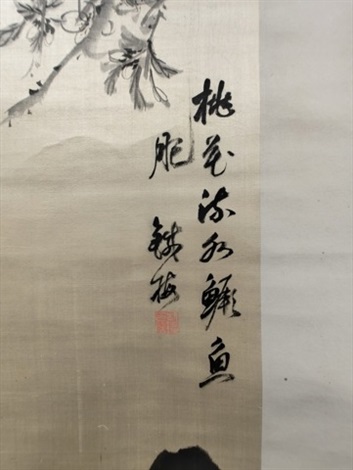 桃花流水鱖魚
肥 鐵梅